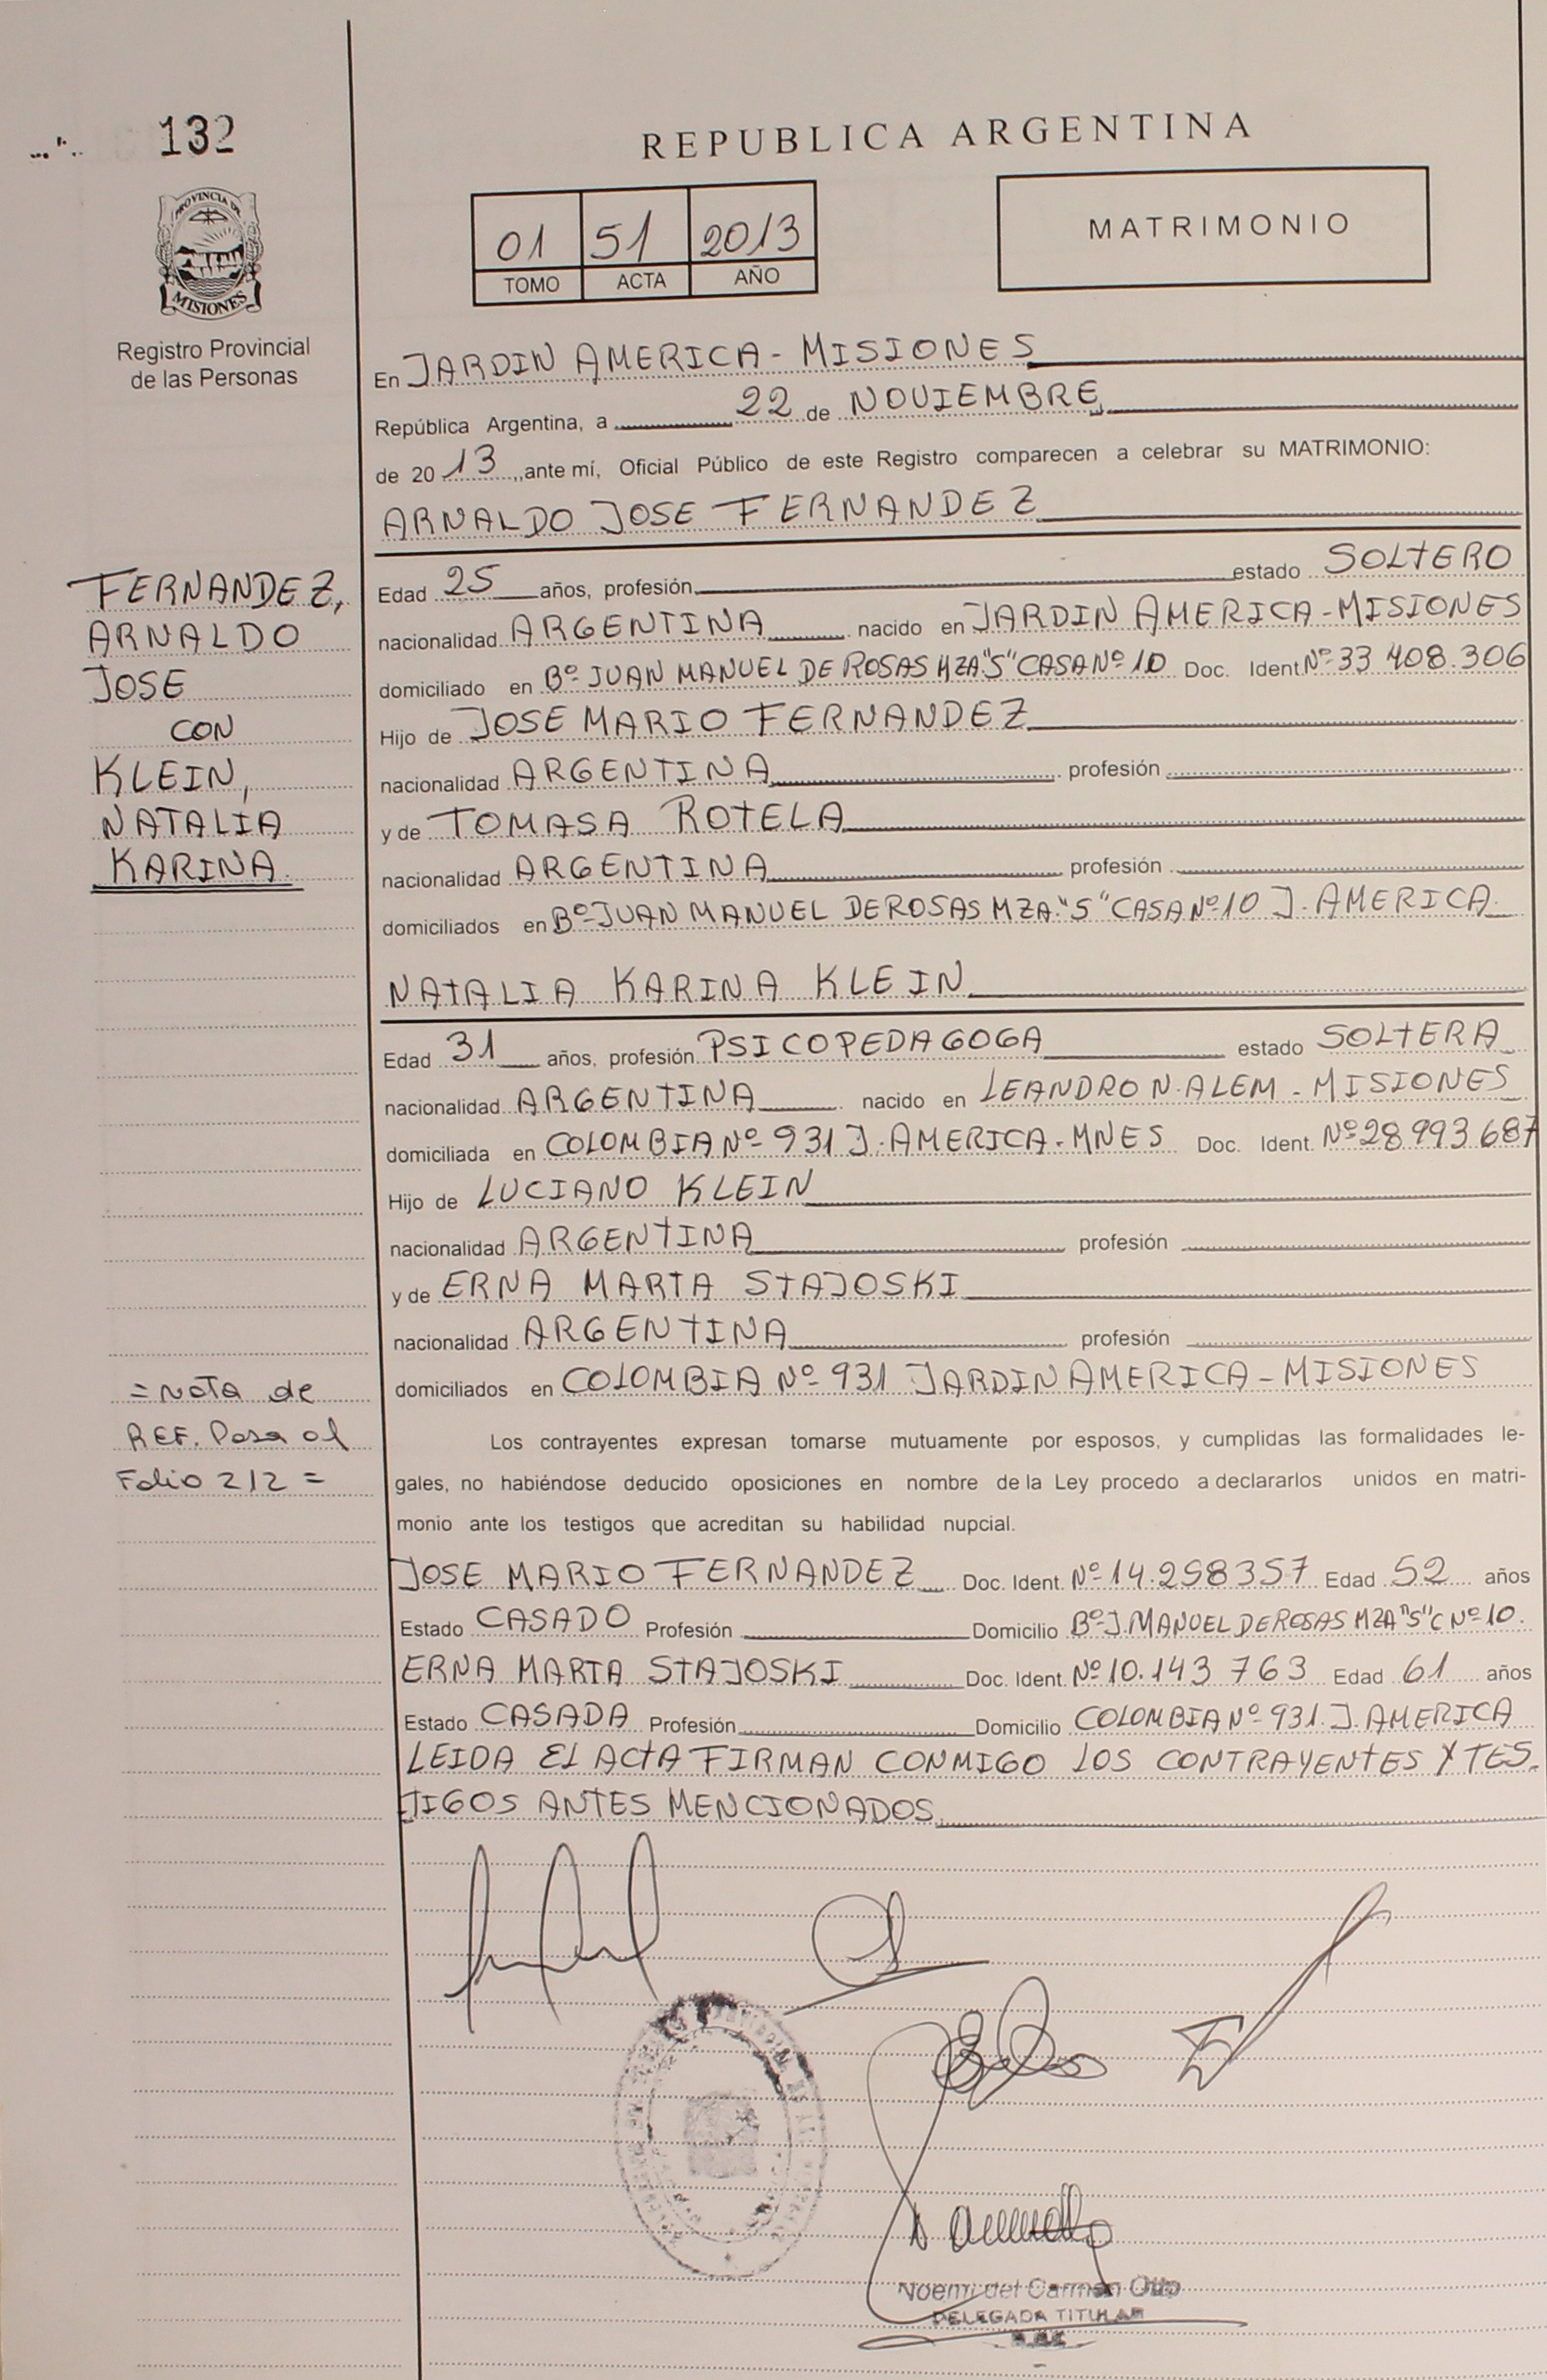 132
PROVINCIA DE
MISIONES
Registro Provincial
de las Personas
REPUBLICA ARGENTINA
01 51 2013
TOMO ACTA AÑO
MATRIMONIO
En JARDIN AMERICA - MISIONES
República Argentina, a 22 de NOVIEMBRE
de 2013, ante mí, Oficial Público de este Registro comparecen a celebrar su MATRIMONIO:
ARNALDO JOSE FERNANDEZ
FERNANDEZ,
ARNALDO
JOSE
CON
KLEIN,
NATALIA
KARINA.
Edad 25 años, profesión estado SOLTERO
nacionalidad ARGENTINA nacido en JARDIN AMERICA - MISIONES
domiciliado en Bº JUAN MANUEL DE ROSAS MZA "S" CASA Nº 10 Doc. Ident Nº 33 408.306
Hijo de JOSE MARIO FERNANDEZ
nacionalidad ARGENTINA profesión
y de TOMASA ROTELA
nacionalidad ARGENTINA profesión
domiciliados en Bº JUAN MANUEL DE ROSAS MZA. "S" CASA Nº 10 J. AMERICA
NATALIA KARINA KLEIN
Edad 31 años, profesión PSICOPEDAGOGA estado SOLTERA
nacionalidad ARGENTINA nacido en LEANDRO N. ALEM - MISIONES
domiciliada en COLOMBIA Nº 931 J. AMERICA - MNES Doc. Ident. Nº 28 993 687
Hijo de LUCIANO KLEIN
nacionalidad ARGENTINA profesión
y de ERNA MARTA STAJOSKI
nacionalidad ARGENTINA profesión
domiciliados en COLOMBIA Nº 931 JARDIN AMERICA - MISIONES
= Nota de
REF. Pasa al
Folio 212 =
Los contrayentes expresan tomarse mutuamente por esposos, y cumplidas las formalidades le-
gales, no habiéndose deducido oposiciones en nombre de la Ley procedo a declararlos unidos en matri-
monio ante los testigos que acreditan su habilidad nupcial.
JOSE MARIO FERNANDEZ Doc. Ident. Nº 14.258357 Edad 52 años
Estado CASADO Profesión Domicilio Bº J. MANUEL DE ROSAS MZA "S" C Nº 10.
ERNA MARTA STAJOSKI Doc. Ident. Nº 10.143 763 Edad 61 años
Estado CASADA Profesión Domicilio COLOMBIA Nº 931. J. AMERICA
LEIDA EL ACTA FIRMAN CONMIGO LOS CONTRAYENTES Y TES-
TIGOS ANTES MENCIONADOS.
Noemi del Carmen Otto
DELEGADA TITULAR